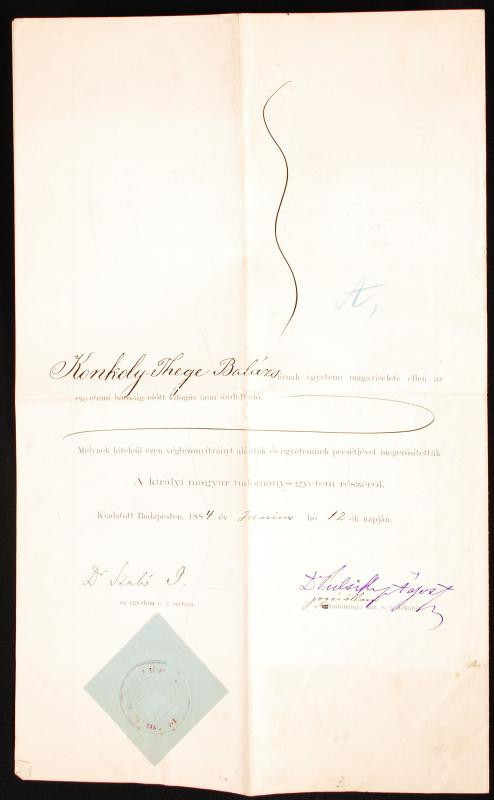 A,
Konkoly Thege Balázs úrnak egyetemi magaviselete ellen az
egyetemi hatóság előtt kifogás nem fordult elő.
Melynek hiteléül ezen végbizonyítványt aláírtuk és egyetemünk pecsétjével megerősítettük.
A királyi magyar tudományegyetem részéről.
Kiadatott Budapesten, 1884 év Junius hó 12-ik napján.
Dr Szabó J.
az egyetem e. i. rectora.
Dr Ágost
jog és állam
tudományi kar e. i. dékánja